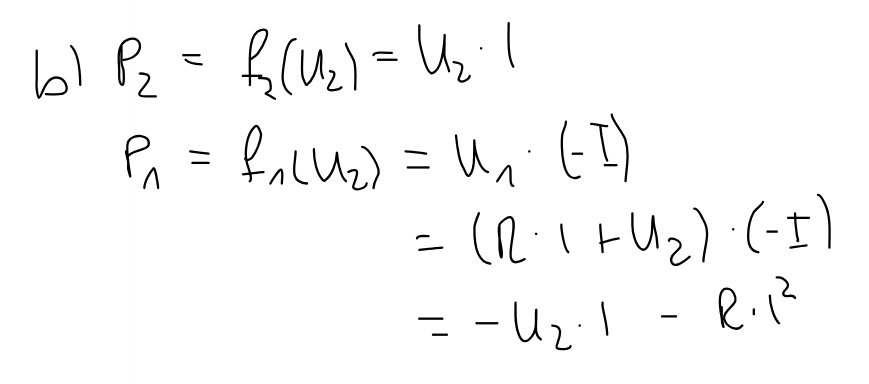 b) P₂ = f₂(U₂) = U₂ · I
P₁ = f₁(U₂) = U₁ · (-I)
= (R · I + U₂) · (-I)
= -U₂ · I - R · I²